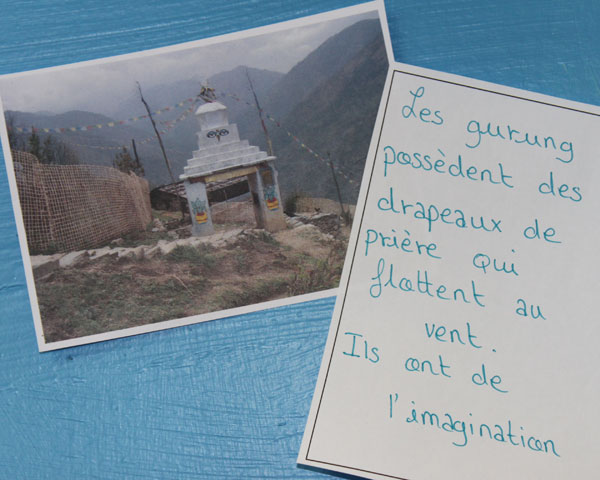 Les gurung
possèdent des
drapeaux de
prière qui
flottent au
vent.
Ils ont de
l'imagination